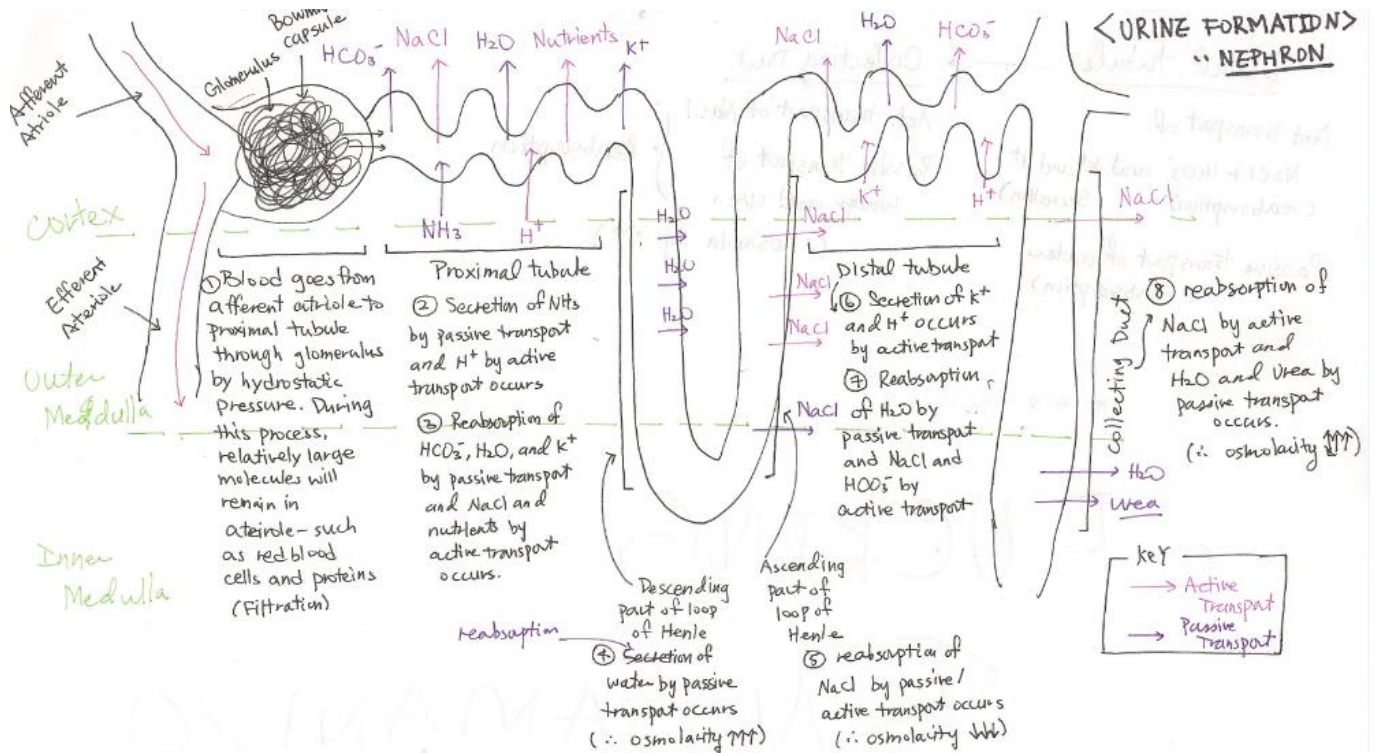 <URINE FORMATION>
∵ NEPHRON
Bowman
capsule
Glomerulus
Afferent
Atriole
Efferent
Arteriole
Cortex
Outer
Medulla
Inner
Medulla
HCO3-
NaCl
H2O
Nutrients
K+
NH3
H+
① Blood goes from
afferent atriole to
proximal tubule
through glomerulus
by hydrostatic
pressure. During
this process,
relatively large
molecules will
remain in
ateirole - such
as red blood
cells and proteins
(Filtration)
Proximal tubule
② Secretion of NH3
by passive transport
and H+ by active
transport occurs
③ Reabsorption of
HCO3-, H2O, and K+
by passive transport
and NaCl and
nutrients by
active transport
occurs.
H2O
H2O
H2O
Descending
part of loop
of Henle
reabsorption
④ Secretion of
water by passive
transport occurs
(∴ osmolacity ↑↑↑)
NaCl
NaCl
NaCl
NaCl
Ascending
part of
loop of
Henle
⑤ reabsorption of
NaCl by passive/
active transport occurs
(∴ osmolacity ↓↓↓)
NaCl
H2O
HCO3-
K+
H+
Distal tubule
⑥ Secretion of K+
and H+ occurs
by active transport
⑦ Reabsorption
of H2O by
passive transport
and NaCl and
HCO3- by
active transport
NaCl
Collecting Duct
⑧ reabsorption of
NaCl by active
transport and
H2O and Urea by
passive transport
occurs.
(∴ osmolacity ↑↑↑)
H2O
urea
KEY
→ Active
Transport
→ Passive
Transport